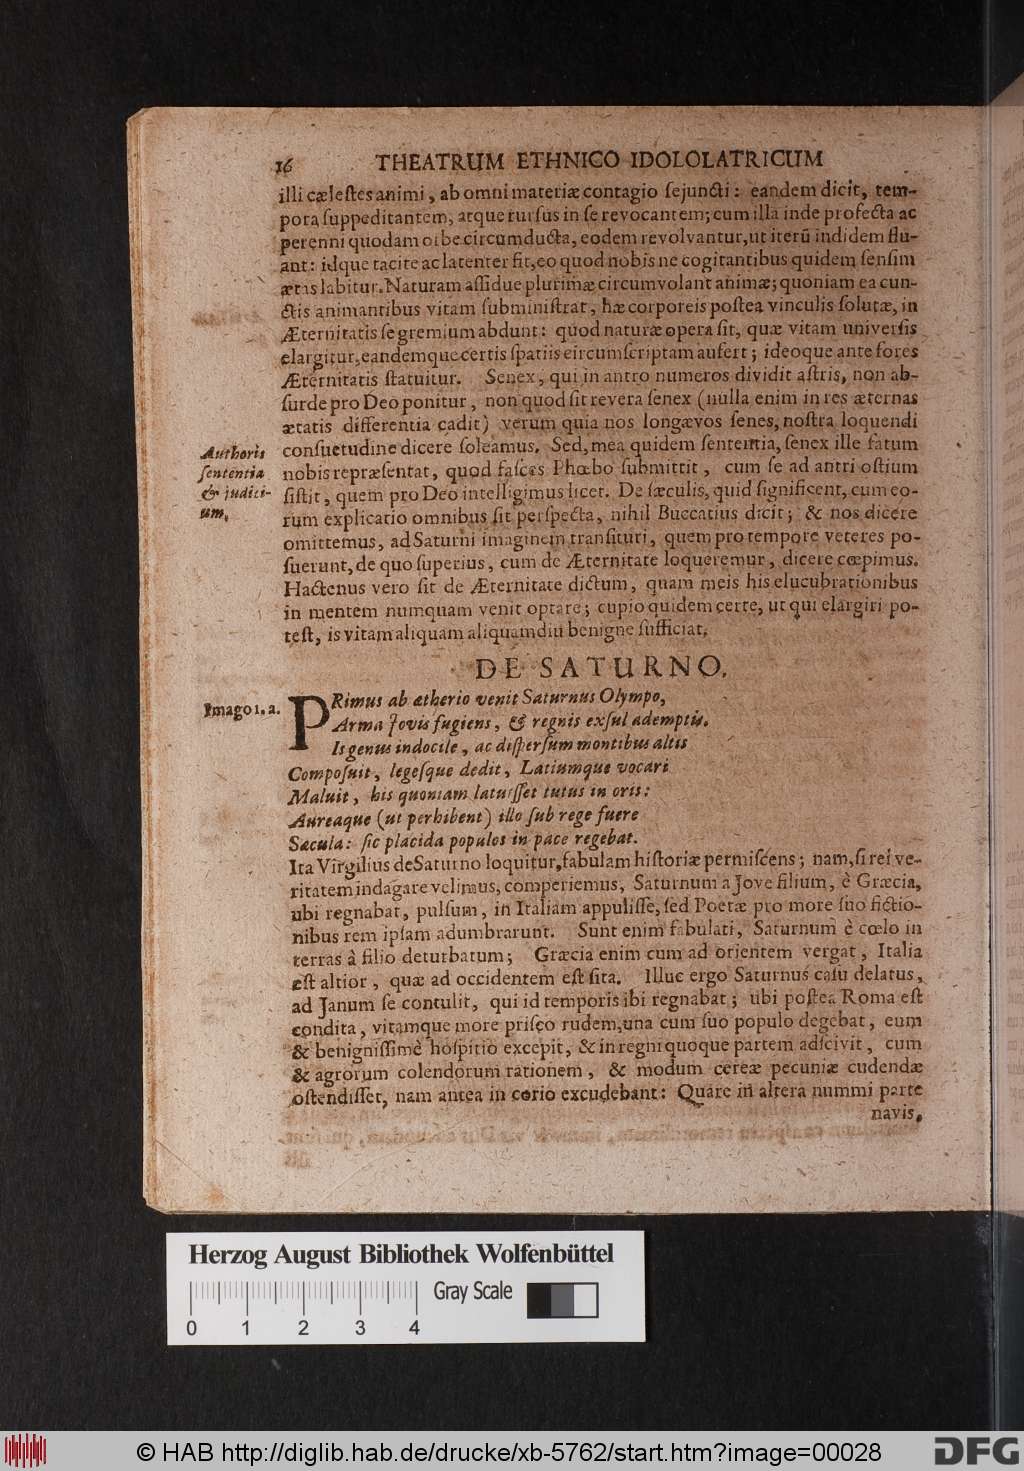 16 THEATRUM ETHNICO IDOLOLATRICUM
illi cæleſtes animi, ab omni materiæ contagio ſejuncti: eandem dicit, tem-
pora ſuppeditantem, atque rurſus in ſe revocantem; cum illa inde profecta ac
perenni quodam orbe circumducta, eodem revolvantur, ut iterũ indidem flu-
ant: idque tacite ac latenter fit, eo quod nobis ne cogitantibus quidem ſenſim
ætas labitur. Naturam aſſidue plurimæ circumvolant animæ; quoniam ea cun-
ctis animantibus vitam ſubminiſtrat, hæ corporeis poſtea vinculis ſolutæ, in
Æternitatis ſe gremium abdunt: quod naturæ opera fit, quæ vitam univerſis
elargitur, eandemque certis ſpatiis circumſcriptam aufert; ideoque ante fores
Æternitatis ſtatuitur. Senex, qui in antro numeros dividit aſtris, non ab-
ſurde pro Deo ponitur, non quod ſit revera ſenex (nulla enim in res æternas
ætatis differentia cadit) verum quia nos longævos ſenes, noſtra loquendi
conſuetudine dicere ſoleamus. Sed, mea quidem ſententia, ſenex ille fatum
Authoris
ſententia
& judici-
um.
nobis repræſentat, quod faſces Phœbo ſubmittit, cum ſe ad antri oſtium
ſiſtit, quem pro Deo intelligimus licet. De ſæculis, quid ſignificent, cum eo-
rum explicatio omnibus ſit perſpecta, nihil Buccatius dicit; & nos dicere
omittemus, ad Saturni imaginem tranſituri, quem pro tempore veteres po-
ſuerunt, de quo ſuperius, cum de Æternitate loqueremur, dicere cœpimus.
Hactenus vero ſit de Æternitate dictum, quam meis his elucubrationibus
in mentem numquam venit optare; cupio quidem certe, ut qui elargiri po-
teſt, is vitam aliquam aliquamdiu benigne ſufficiat.
DE SATURNO.
Imago 1. a.
PRimus ab ætherio venit Saturnus Olympo,
Arma Jovis fugiens, & regnis exſul ademptis.
Is genus indocile, ac diſperſum montibus altis
Compoſuit, legeſque dedit, Latiumque vocari
Maluit, his quoniam latuiſſet tutus in oris:
Aureaque (ut perhibent) illo ſub rege fuere
Sæcula: ſic placida populos in pace regebat.
Ita Virgilius de Saturno loquitur, fabulam hiſtoriæ permiſcens; nam, ſi rei ve-
ritatem indagare velimus, comperiemus, Saturnum a Jove filium, è Græcia,
ubi regnabat, pulſum, in Italiam appuliſſe, ſed Poetæ pro more ſuo fictio-
nibus rem ipſam adumbrarunt. Sunt enim fabulati, Saturnum è cœlo in
terras à filio deturbatum; Græcia enim cum ad orientem vergat, Italia
eſt altior, quæ ad occidentem eſt ſita. Illuc ergo Saturnus caſu delatus,
ad Janum ſe contulit, qui id temporis ibi regnabat; ubi poſtea Roma eſt
condita, vitamque more priſco rudem, una cum ſuo populo degebat, eum
& benigniſſimè hoſpitio excepit, & in regni quoque partem adſcivit, cum
& agrorum colendorum rationem, & modum cereæ pecuniæ cudendæ
oſtendiſſet, nam antea in corio excudebant: Quare in altera nummi parte
navis,
Herzog August Bibliothek Wolfenbüttel
0 1 2 3 4 Gray Scale
© HAB http://diglib.hab.de/drucke/xb-5762/start.htm?image=00028
DFG